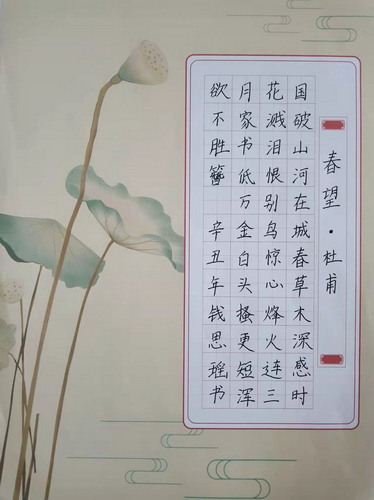 春望·杜甫
国破山河在城春草木深感时
花溅泪恨别鸟惊心烽火连三
月家书低万金白头搔更短浑
欲不胜簪 辛丑年钱思瑶书